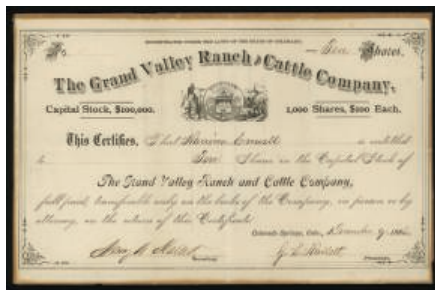 INCORPORATED UNDER THE LAWS OF THE STATE OF COLORADO.
Ten Shares.
The Grand Valley Ranch & Cattle Company,
Capital Stock, $100,000.
1,000 Shares, $100 Each.
This Certifies, That is entitled
to Ten Shares in the Capital Stock of
The Grand Valley Ranch and Cattle Company,
full paid, transferable only on the books of the Company, in person or by
attorney, on the return of this Certificate
Colorado Springs, Colo., December 9